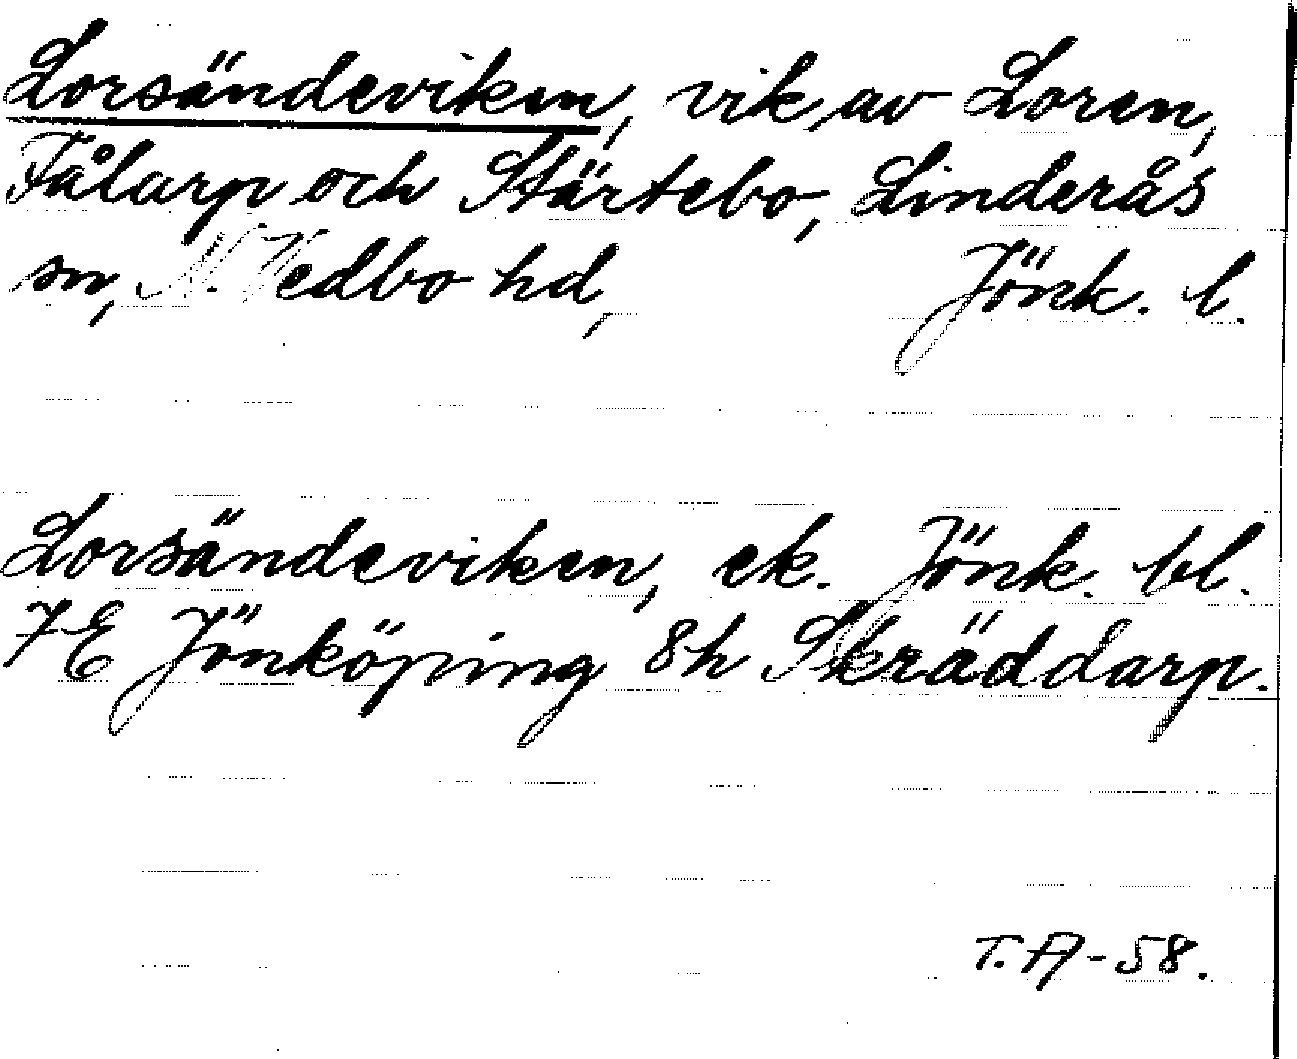 Lorsändeviken, vik av Loren,
Fålarp och Stärtebo, Linderås
sn, N. Vedbo hd, Jönk. l.
Lorsändeviken, ek. Jönk. bl.
7E Jönköping 8h Skräddarp.
T. A-58.